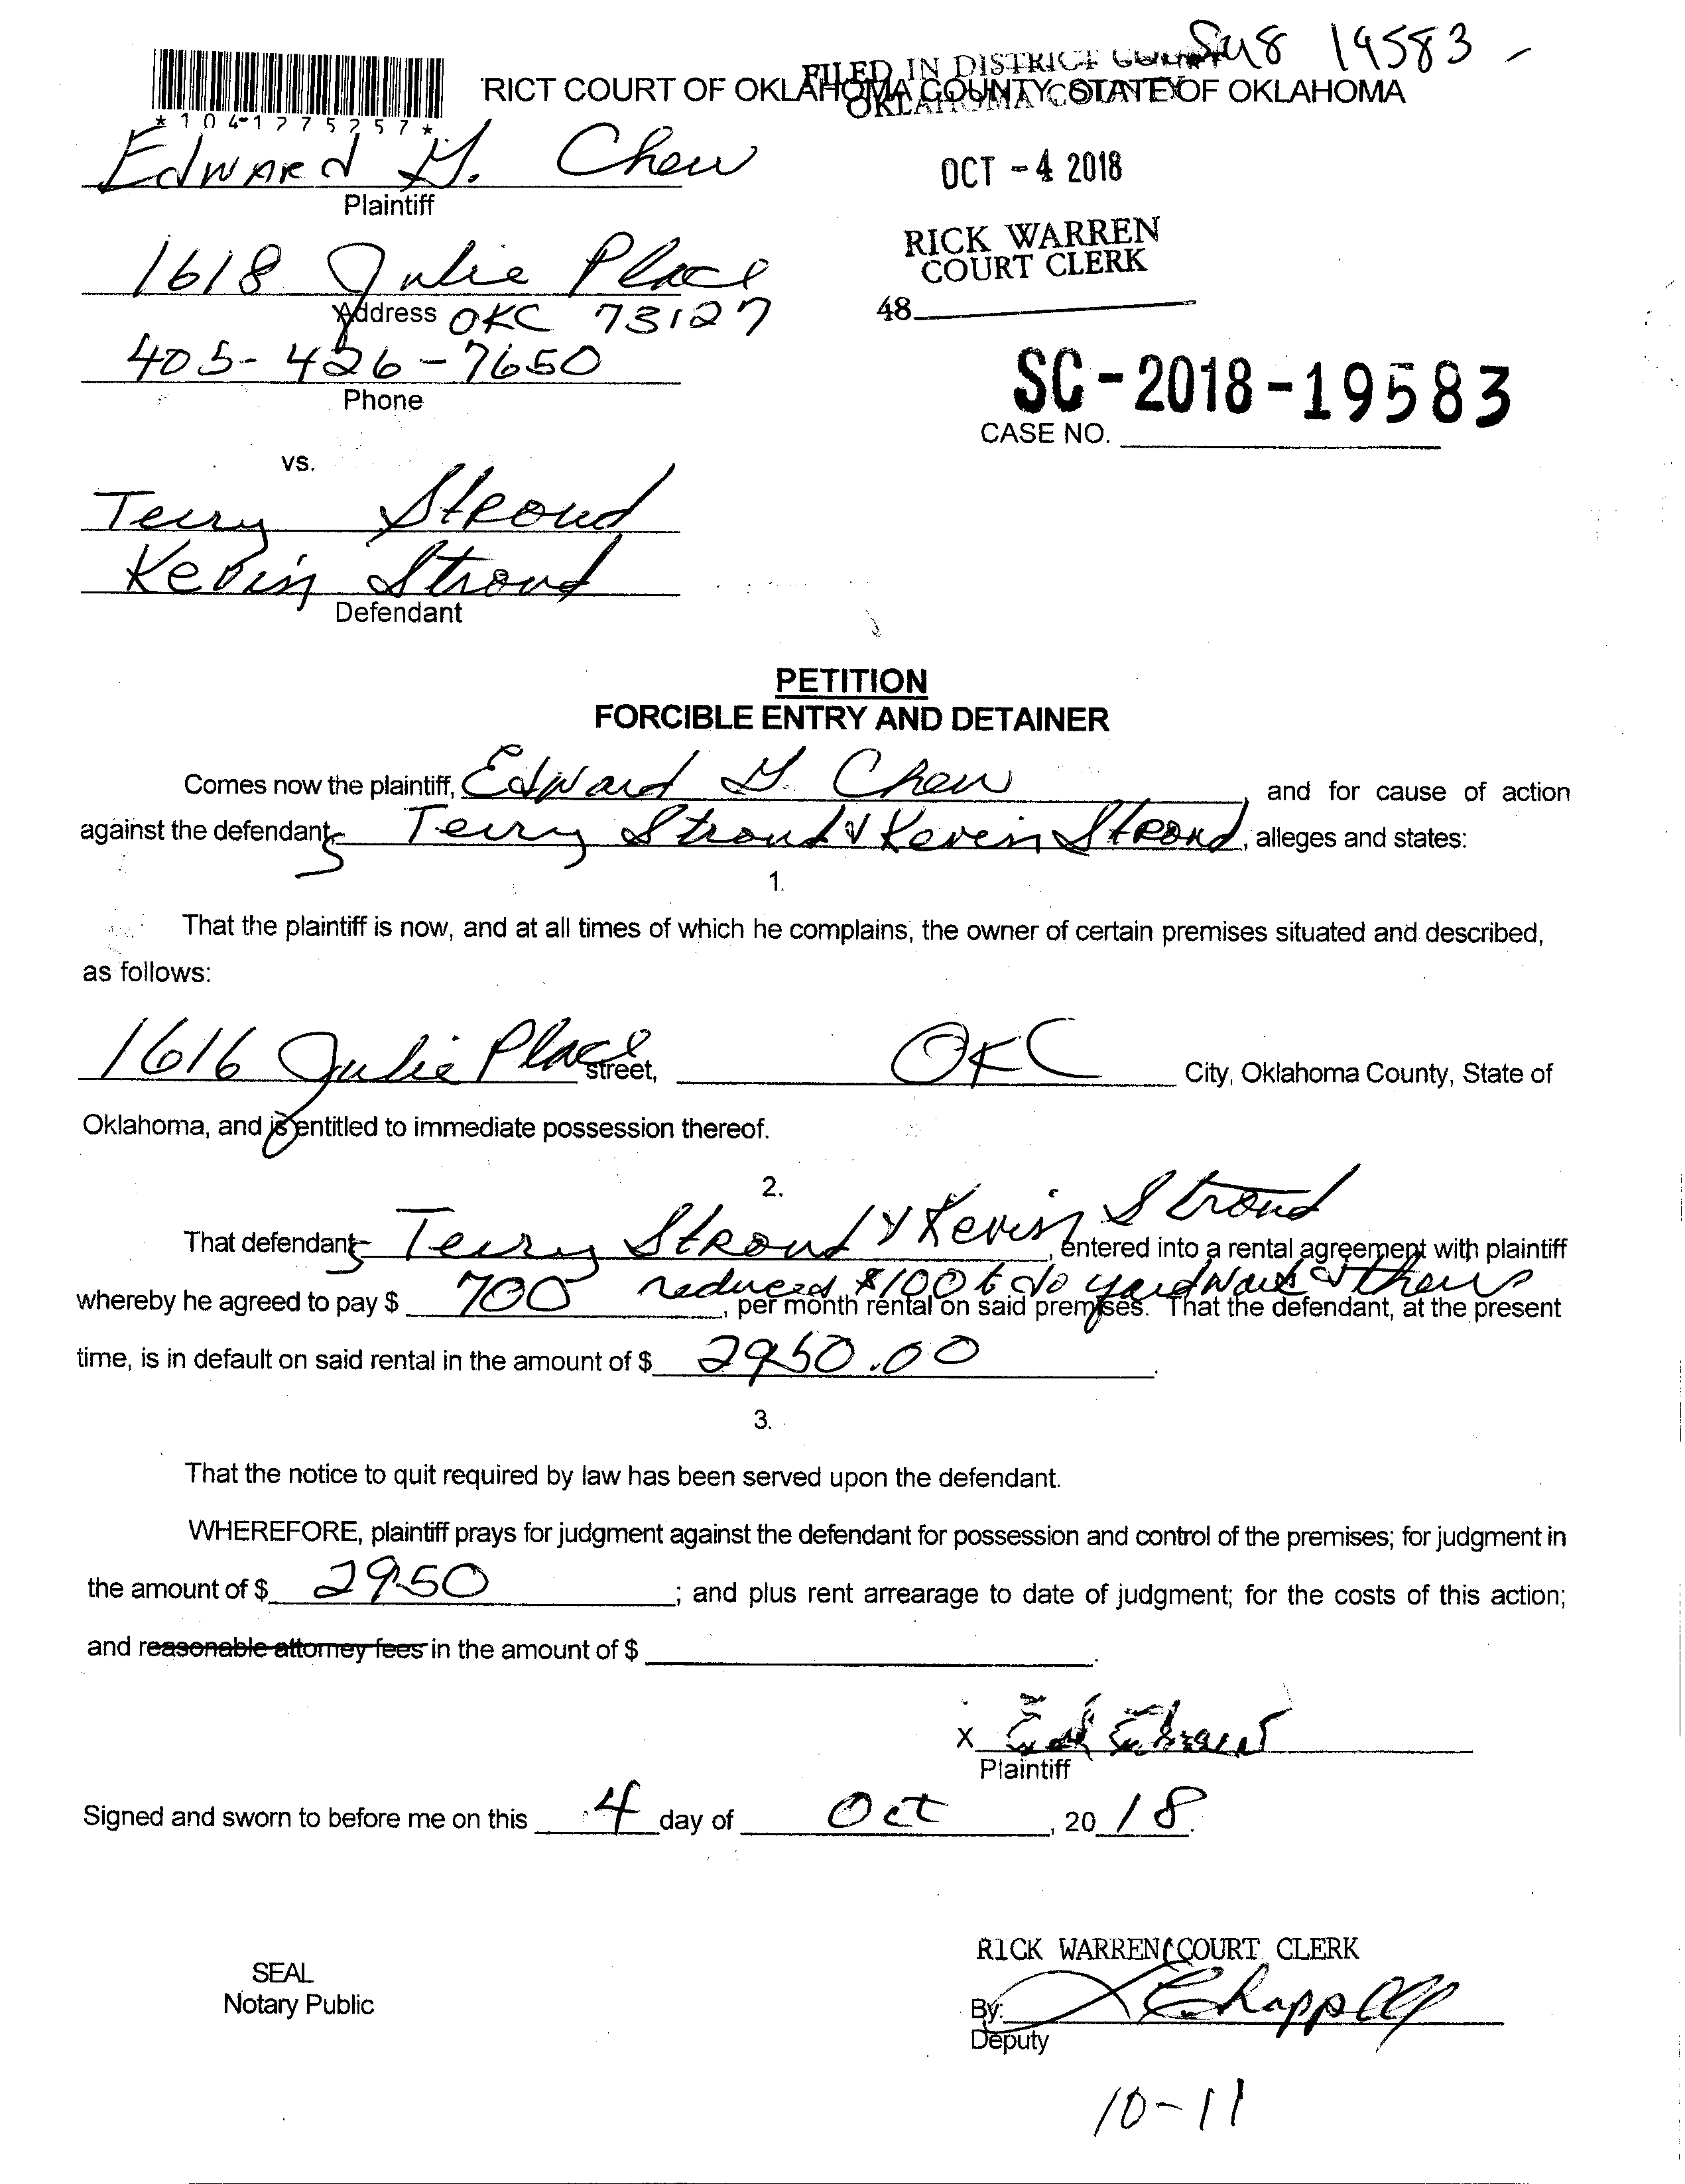 Su8 19583 -
FILED IN DISTRICT COURT
RICT COURT OF OKLAHOMA COUNTY, STATE OF OKLAHOMA
OKLAHOMA COUNTY
*1041275257*
Edward Chew
Plaintiff
OCT -4 2018
RICK WARREN
COURT CLERK
48
1618 Julie Place
Address OKC 73127
405-426-7650
Phone
SC-2018-19583
CASE NO.
vs.
Terry Stroud
Kevin Stroud
Defendant
PETITION
FORCIBLE ENTRY AND DETAINER
Comes now the plaintiff, Edward Chew and for cause of action
against the defendants Terry Stroud & Kevin Stroud, alleges and states:
1.
That the plaintiff is now, and at all times of which he complains, the owner of certain premises situated and described,
as follows:
1616 Julie Place street, OKC City, Oklahoma County, State of
Oklahoma, and is entitled to immediate possession thereof.
2.
That defendants Terry Stroud & Kevin Stroud, entered into a rental agreement with plaintiff
reduced $100 to do yard work & others
whereby he agreed to pay $ 700, per month rental on said premises. That the defendant, at the present
time, is in default on said rental in the amount of $ 2950.00.
3.
That the notice to quit required by law has been served upon the defendant.
WHEREFORE, plaintiff prays for judgment against the defendant for possession and control of the premises; for judgment in
the amount of $ 2950; and plus rent arrearage to date of judgment; for the costs of this action;
and reasonable attorney fees in the amount of $
X
Plaintiff
Signed and sworn to before me on this 4 day of Oct, 20 18.
SEAL
Notary Public
RICK WARREN COURT CLERK
By: Chappell
Deputy
10-11